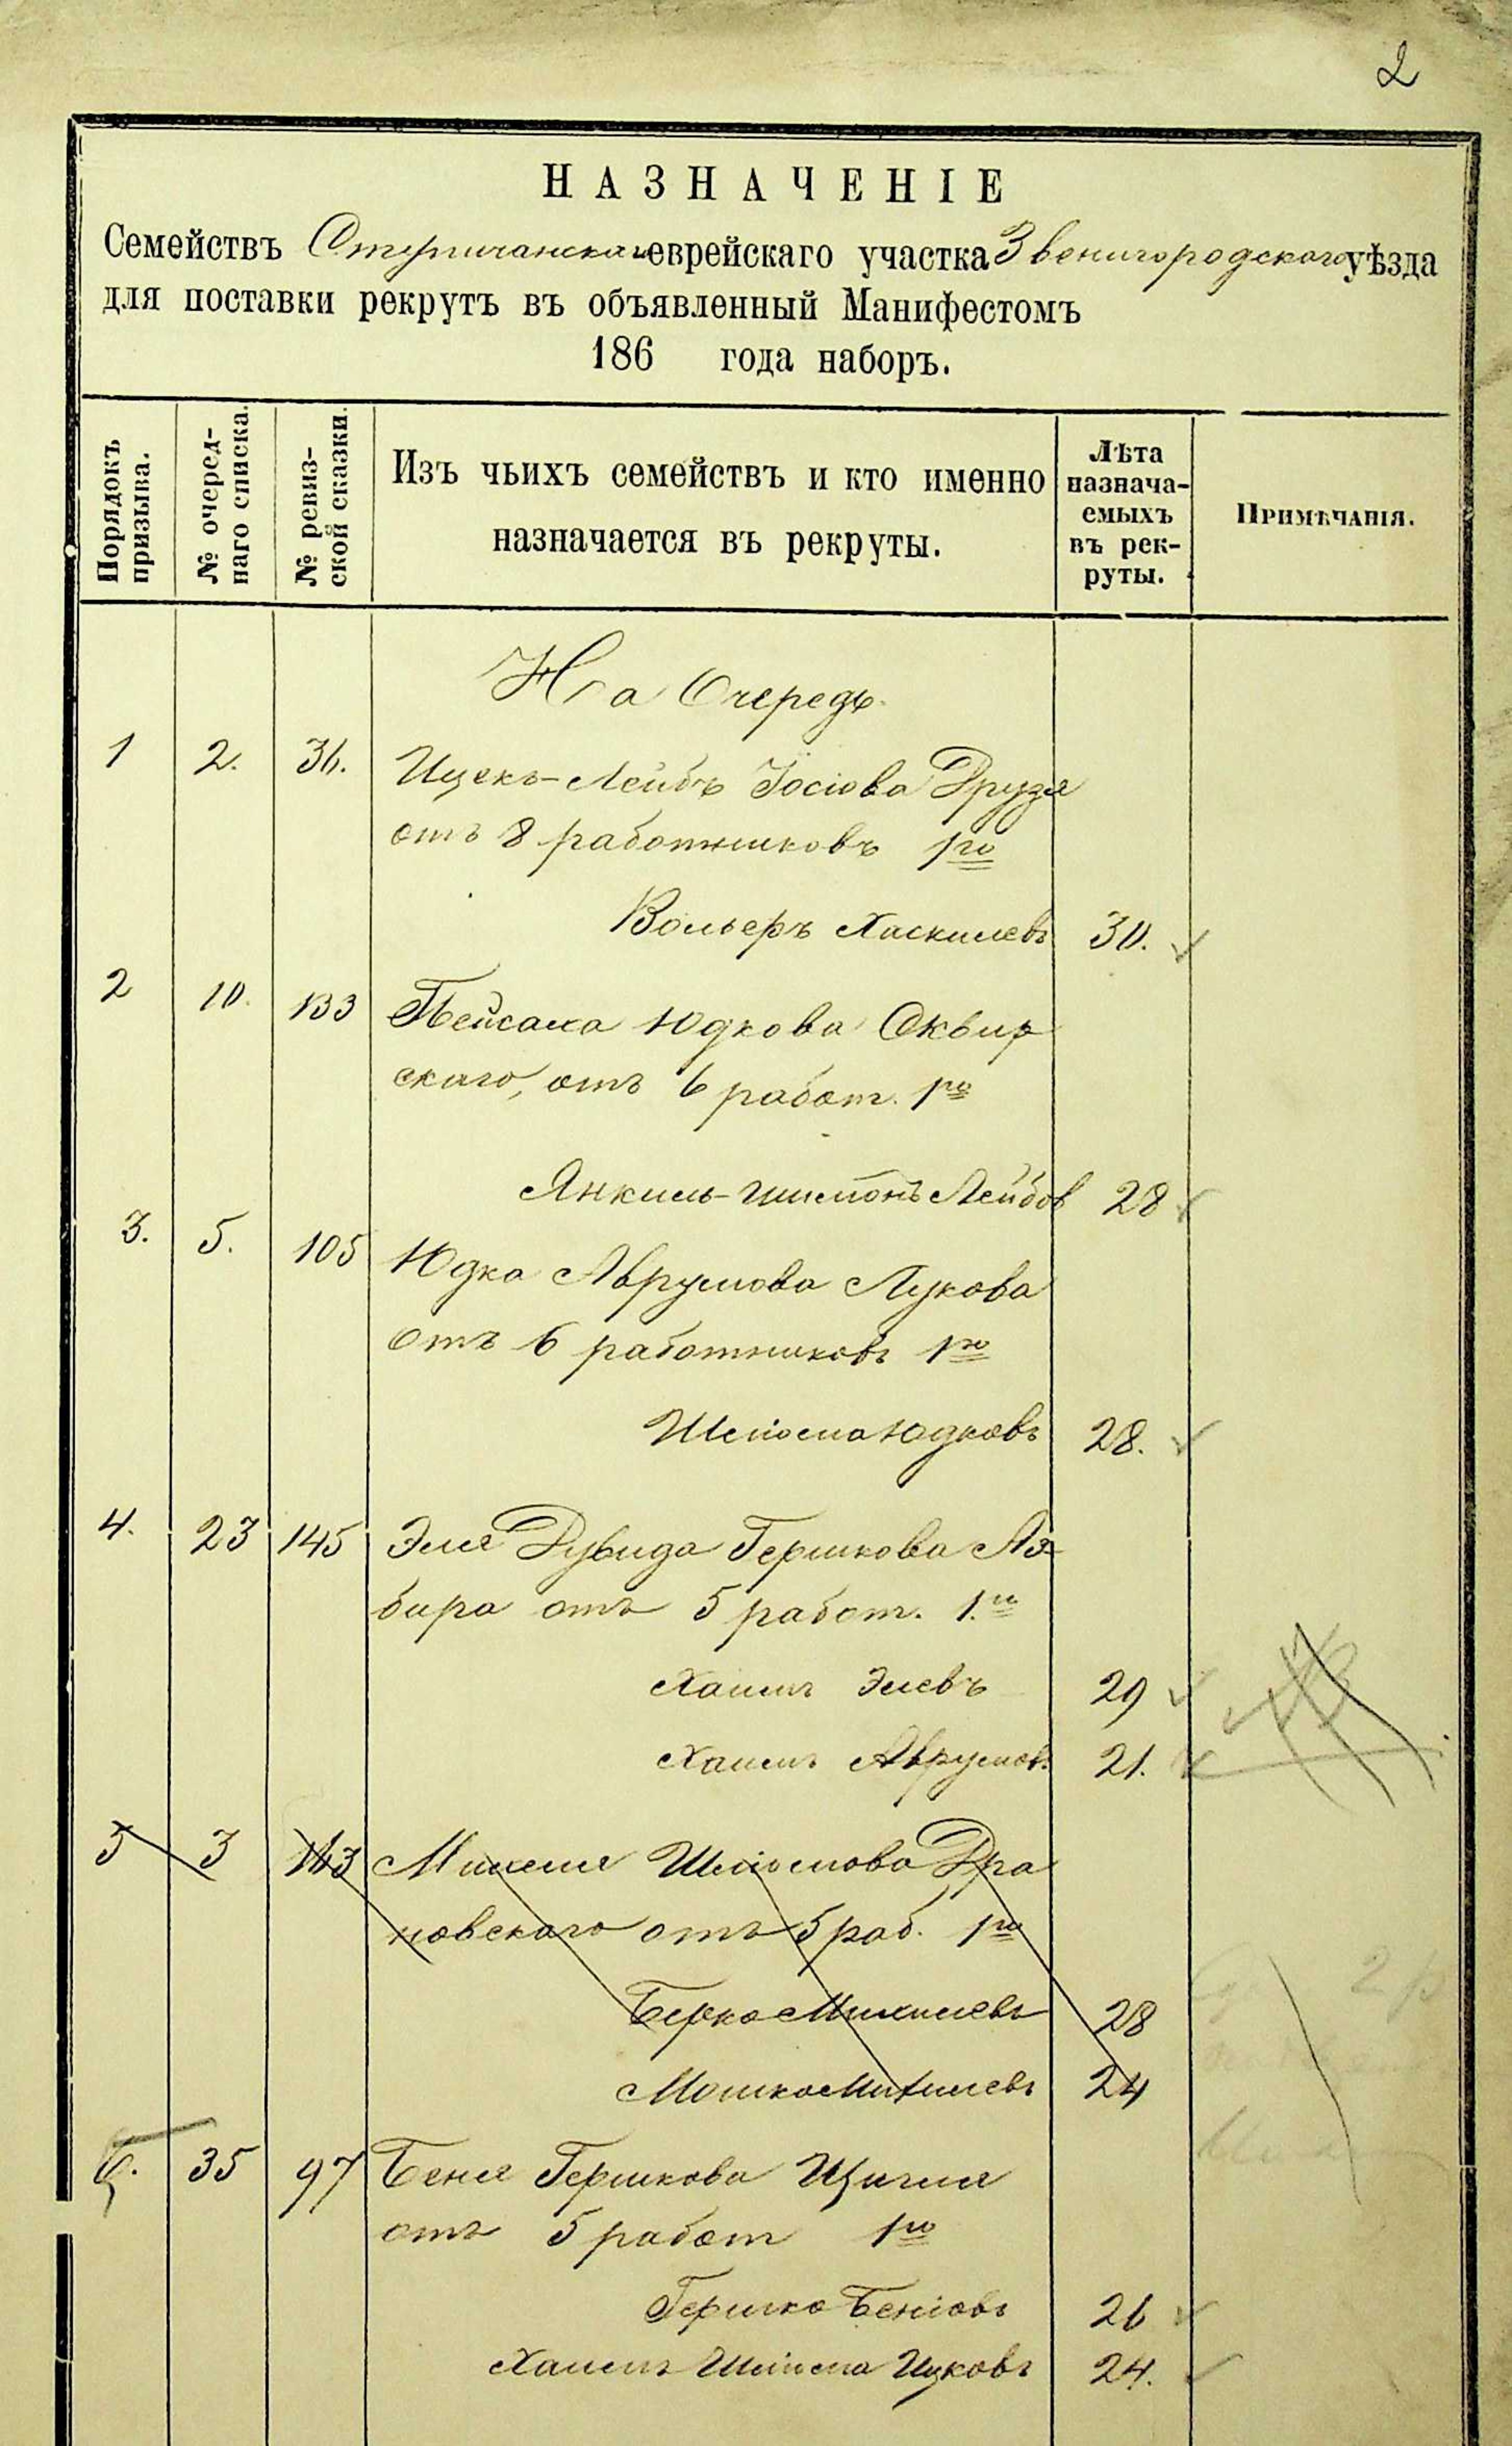 2
НАЗНАЧЕНІЕ
Семействъ еврейскаго участка Звенигородскаго уѣзда
для поставки рекрутъ въ объявленный Манифестомъ
186 года наборъ.
Порядокъ призыва.
№ очеред-
наго списка.
№ ревиз-
ской сказки.
Изъ чьихъ семействъ и кто именно
назначается въ рекруты.
Лѣта
назнача-
емыхъ
въ рек-
руты.
Примѣчанія.
На Очередь.
1 2. 36. Ицекъ-Лейбъ Іосіова Друзя
отъ 8 работниковъ 1го
Вольеръ Хаскилевъ 30.
2 10. 133 Пейсаха Юдкова Сквир
скаго, отъ 6 работ. 1го
Янкиль-Шимонъ Лейбов 28
3. 5. 105 Юдка Аврумова Лукова
отъ 6 работниковъ 1го
Шліома Юдковъ 28.
4. 23 145 Эля Дувида Гершкова Аз-
бира отъ 5 работ. 1го
Хаимъ Элевъ 29
Хаимъ Аврумов. 21.
5 3 143 Михеля Шліомова Дра
новскаго отъ 5 раб. 1го
Берко Михилевъ 28
Мошко Михилевъ 24
35 97 Беня Гершкова
отъ 5 работ 1го
Гершко Беніовъ 26
Хаимъ Шліома Ицковъ 24.